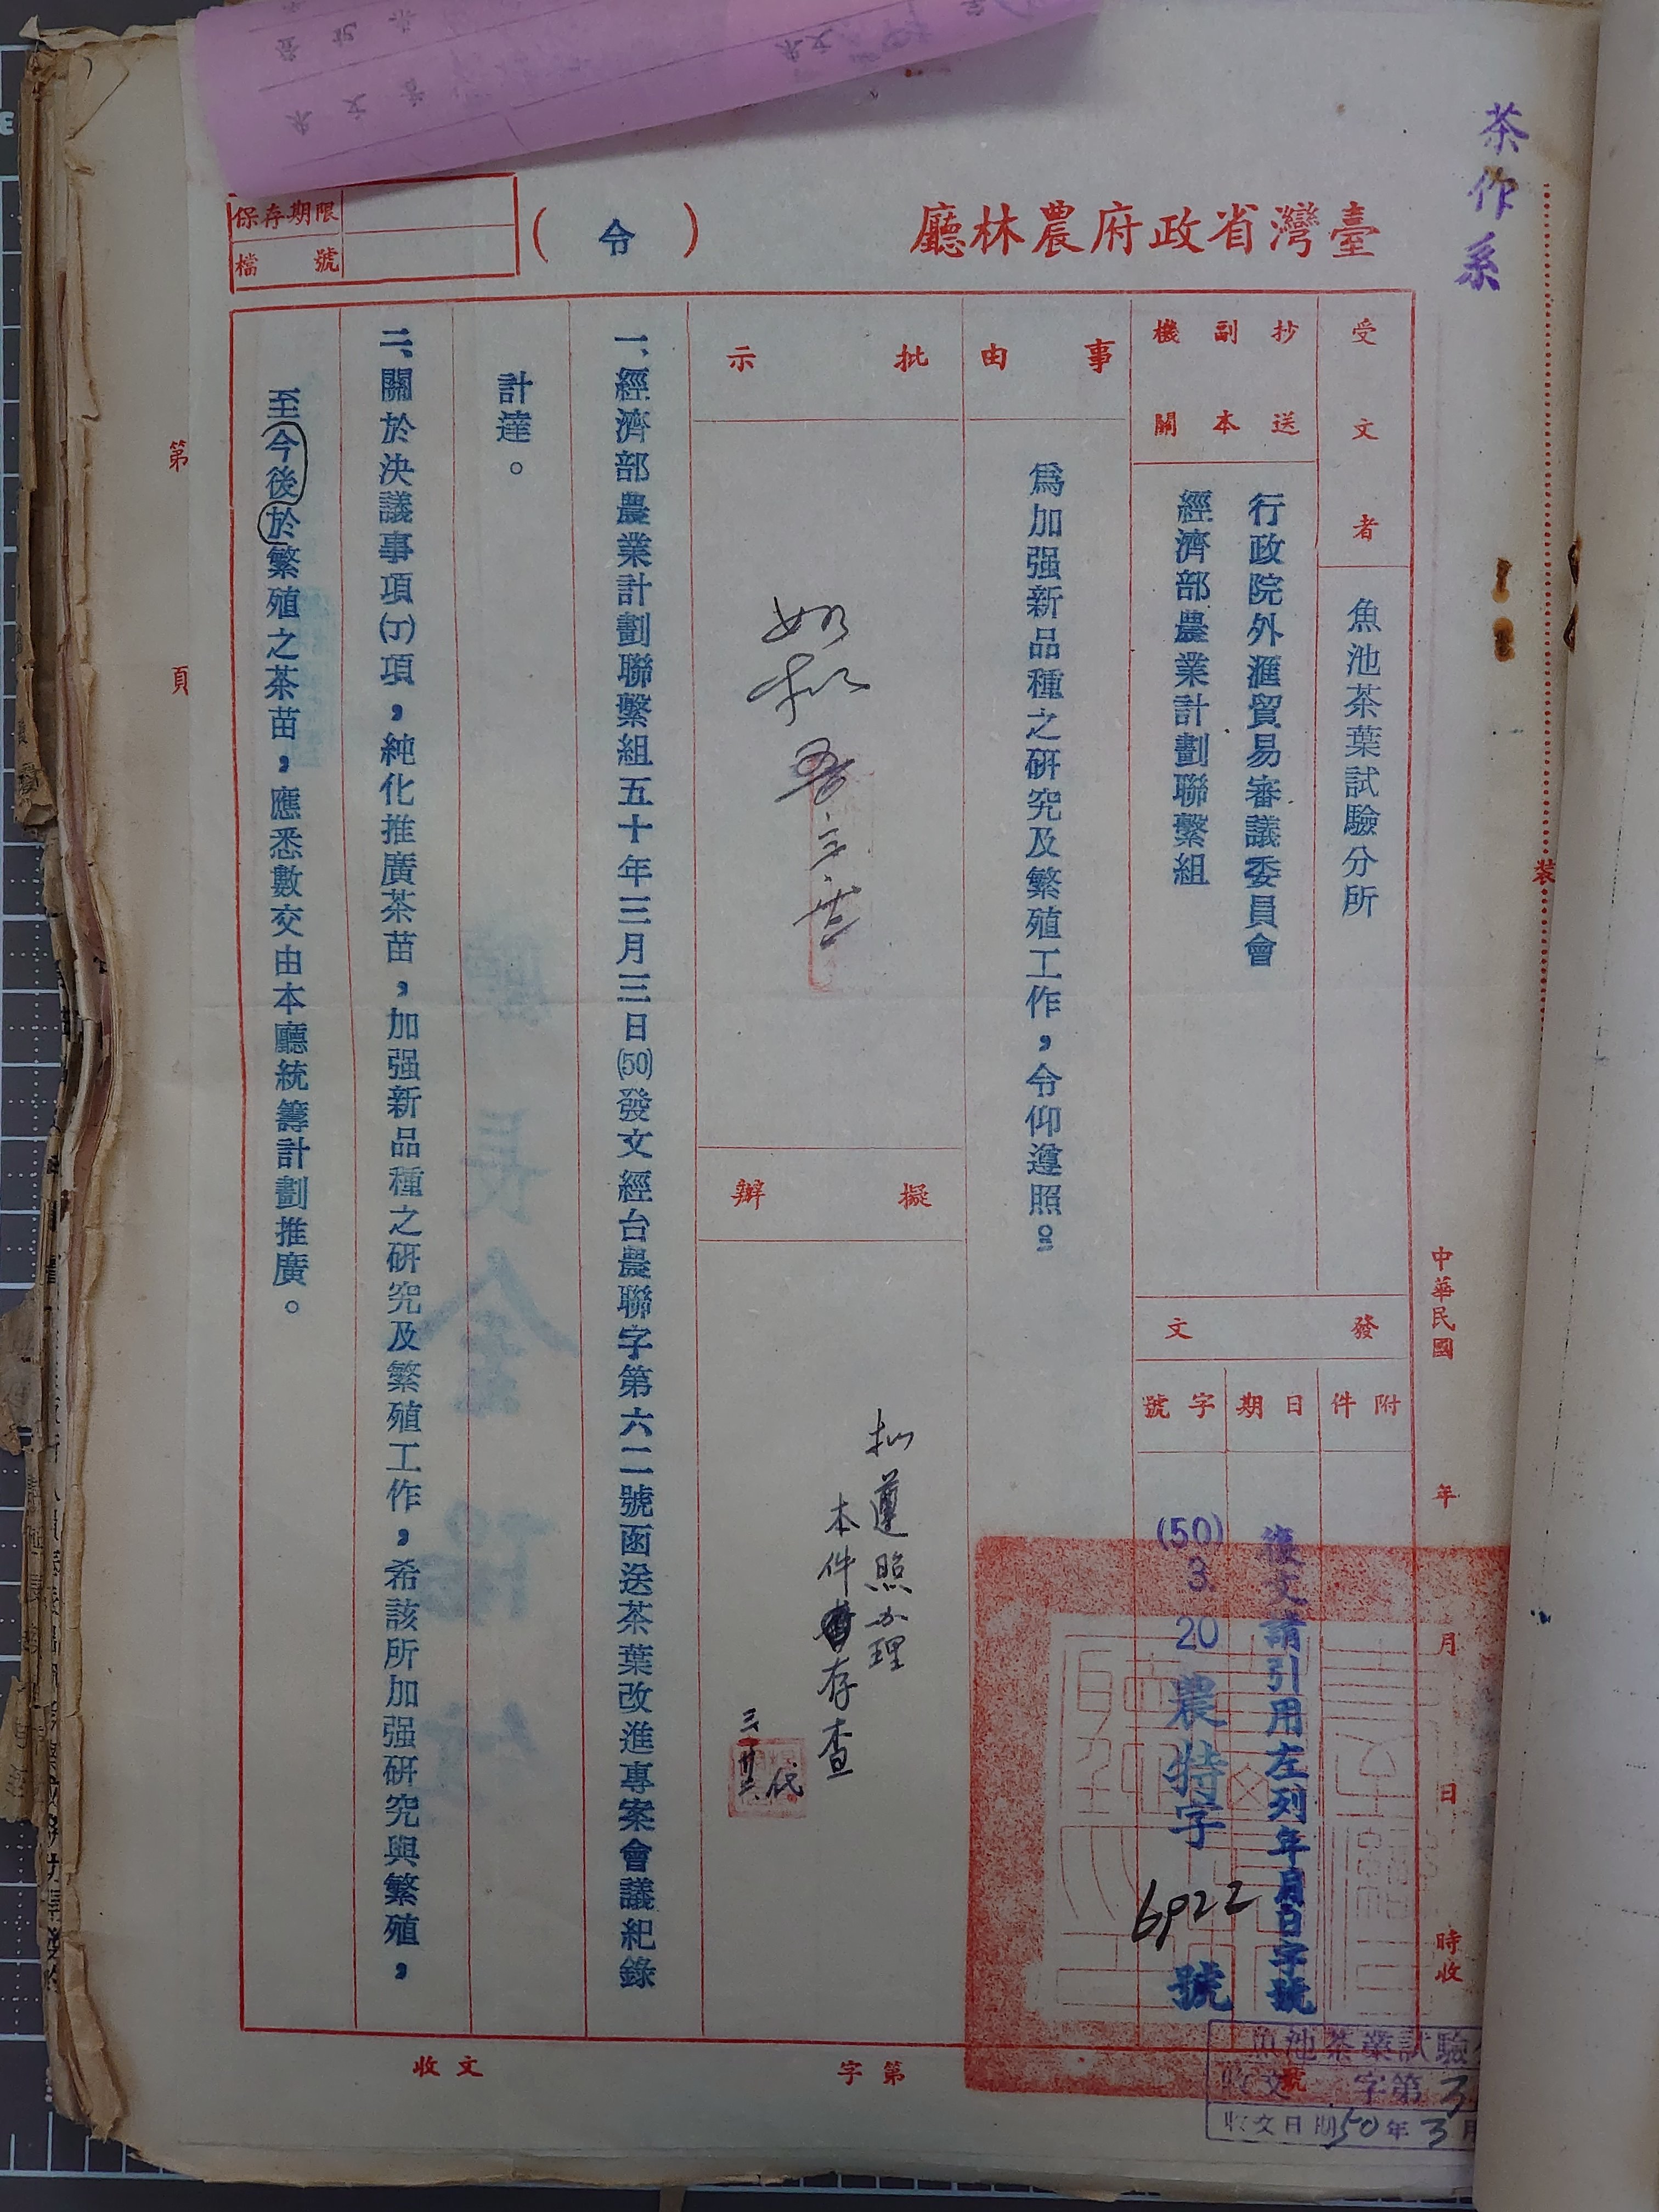 茶作系
臺灣省政府農林廳
(令)
保存期限
檔號
受文者
魚池茶葉試驗分所
抄送副本機關
行政院外滙貿易審議委員會
經濟部農業計劃聯繫組
中華民國 年 月 日 時收
發文
附件
日期
字號
復文請引用左列年月日字號
(50) 3 20 農特字 6922 號
事由
為加强新品種之硏究及繁殖工作,令仰遵照。
批示
如拟
擬辦
拟遵照办理
本件存查
代
一、經濟部農業計劃聯繫組五十年三月三日(50)發文經台農聯字第六二號函送茶葉改進專案會議紀錄
計達。
二、關於決議事項(丁)項,純化推廣茶苗,加强新品種之硏究及繁殖工作,希該所加强硏究與繁殖,
至今後於繁殖之茶苗,應悉數交由本廳統籌計劃推廣。
第 頁
裝
收文 字第 號
魚池茶業試驗
收文 字第3
收文日期50年3月